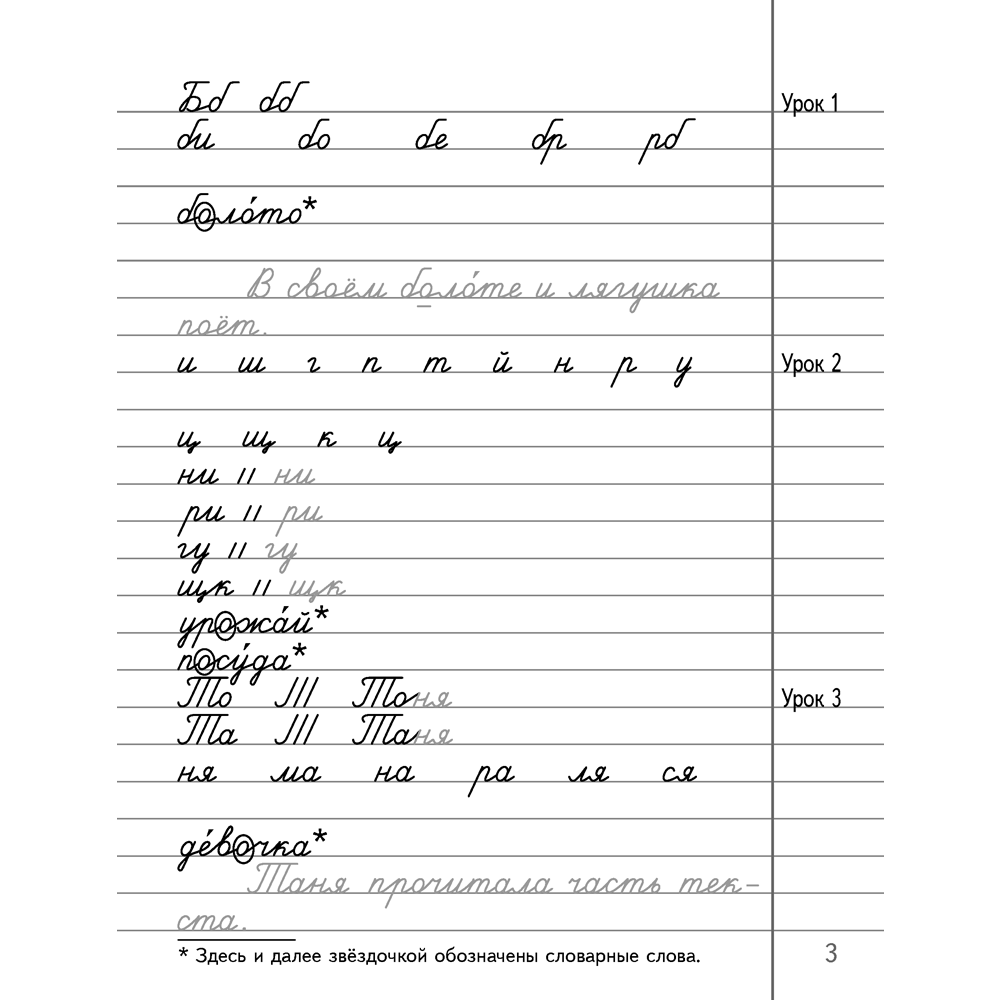 Бб бб Урок 1
би бо бе бр рб
боло́то*
В своём боло́те и лягушка
поёт.
и ш г п т й н р у Урок 2
ц щ к ц
ни || ни
ри || ри
гу || гу
щк || щк
урожа́й*
посу́да*
То /// Тоня Урок 3
Та /// Таня
ня ма на ра ля ся
де́вочка*
Таня прочитала часть тек-
ста.
* Здесь и далее звёздочкой обозначены словарные слова.
3